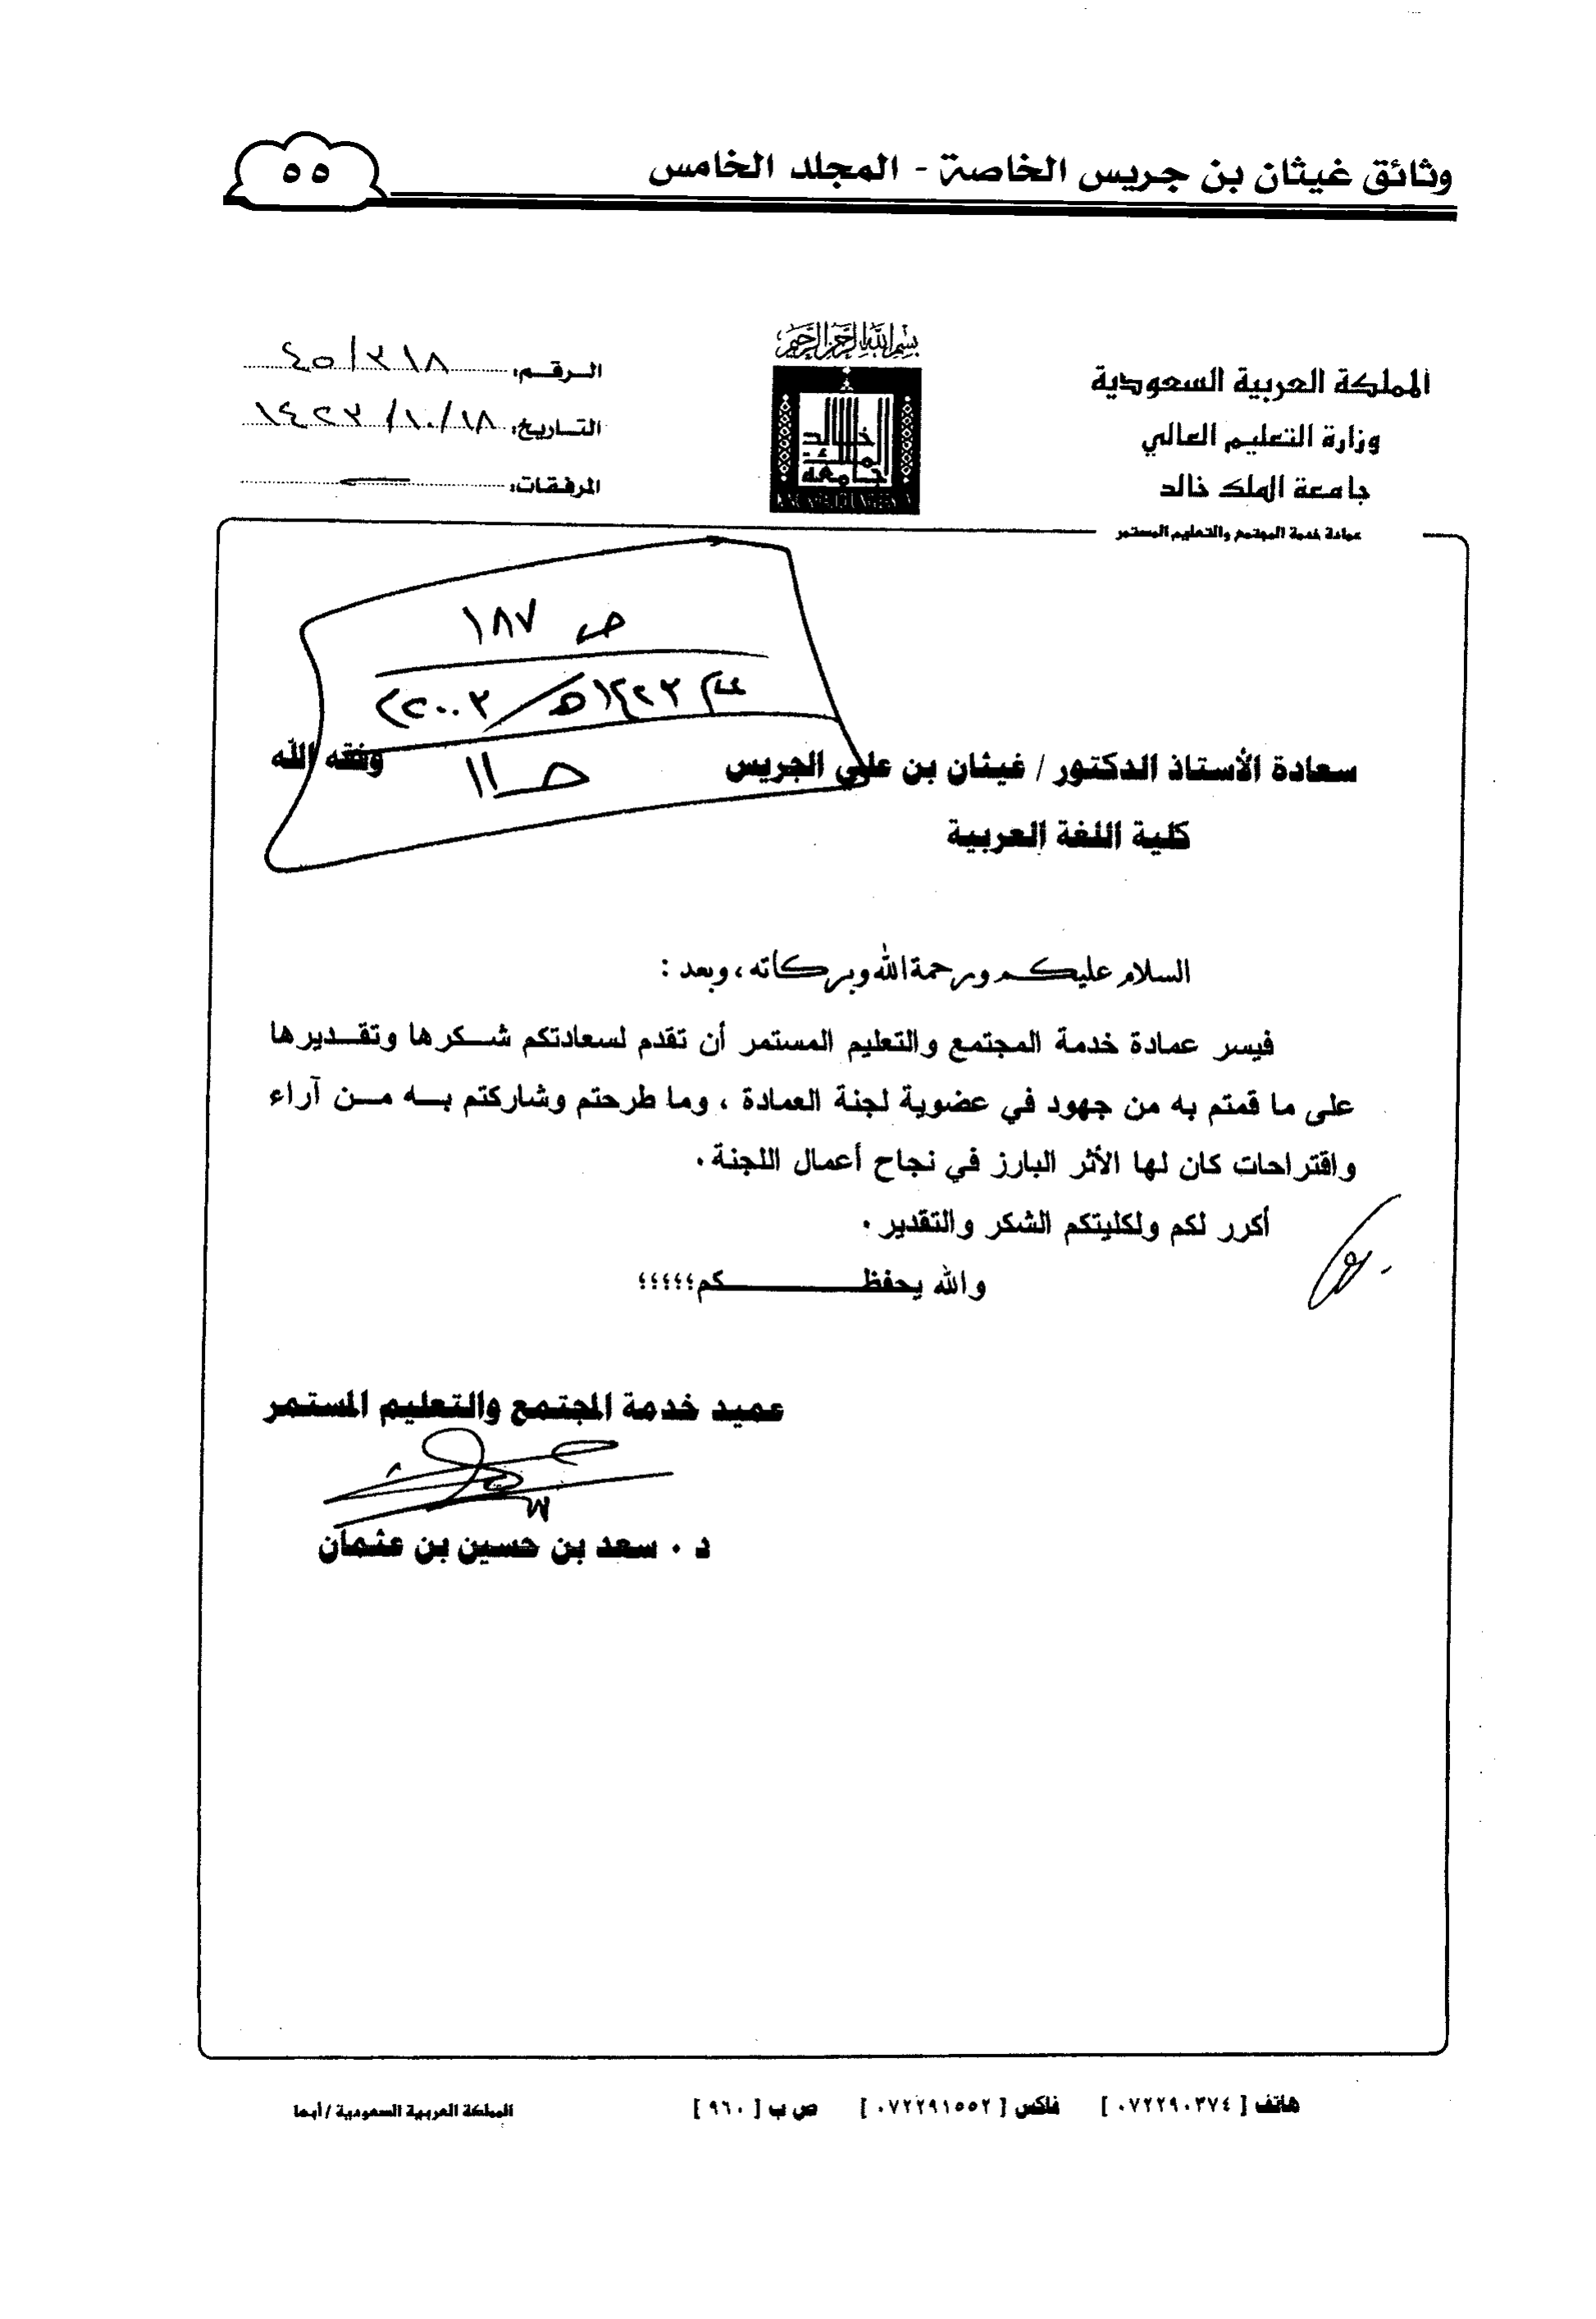 وثائق غيثان بن جريس الخاصة - المجلد الخامس
٥٥
بسم الله الرحمن الرحيم
المملكة العربية السعودية
وزارة التعليم العالي
جامعة الملك خالد
عمادة خدمة المجتمع والتعليم المستمر
جامعة الملك خالد
الرقم: ٤٥/٣١٨
التاريخ: ١٤٢٣/١٠/١٨
المرفقات:
ص ١٨٧
١٤٢٣هـ/٢٠٠٣م
ص ١١
سعادة الأستاذ الدكتور / غيثان بن علي الجريس وفقه الله
كلية اللغة العربية
السلام عليكم ورحمة الله وبركاته ، وبعد :
فيسر عمادة خدمة المجتمع والتعليم المستمر أن تقدم لسعادتكم شكرها وتقديرها
على ما قمتم به من جهود في عضوية لجنة العمادة ، وما طرحتم وشاركتم به من آراء
واقتراحات كان لها الأثر البارز في نجاح أعمال اللجنة .
أكرر لكم ولكليتكم الشكر والتقدير .
والله يحفظكم؛؛؛؛؛
عميد خدمة المجتمع والتعليم المستمر
د . سعد بن حسين بن عثمان
هاتف [ ٠٧٢٢٩٠٣٧٤ ] فاكس [ ٠٧٢٢٩١٥٥٢ ] ص ب [ ٩٦٠ ] المملكة العربية السعودية / أبها